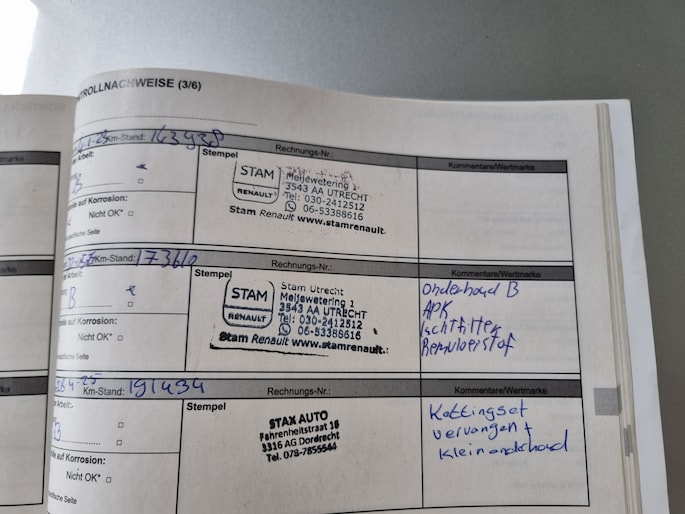 NTROLLNACHWEISE (3/6)
Km-Stand: 163938
er Arbeit:
B
elle auf Korrosion:
Nicht OK*
ezifische Seite
Stempel
Rechnungs-Nr.:
STAM
RENAULT
Meijewetering 1
3543 AA UTRECHT
Tel: 030-2412512
06-53388616
Stam Renault www.stamrenault.
Kommentare/Wertmarke
Km-Stand: 173610
B
auf Korrosion:
Nicht OK*
ezifische Seite
Stempel
Rechnungs-Nr.:
STAM
RENAULT
Stam Utrecht
Meijewetering 1
3543 AA UTRECHT
Tel: 030-2412512
06-53388616
Stam Renault www.stamrenault.
Kommentare/Wertmarke
Onderhoud B
APK
luchtfilter
Remvloeistof
28-4-25 Km-Stand: 191434
er Arbeit:
B
elle auf Korrosion:
Nicht OK*
ezifische Seite
Stempel
Rechnungs-Nr.:
STAX AUTO
Fahrenheitstraat 16
3316 AG Dordrecht
Tel. 078-7855544
Kommentare/Wertmarke
Kettingset
vervangen +
klein onderhoud